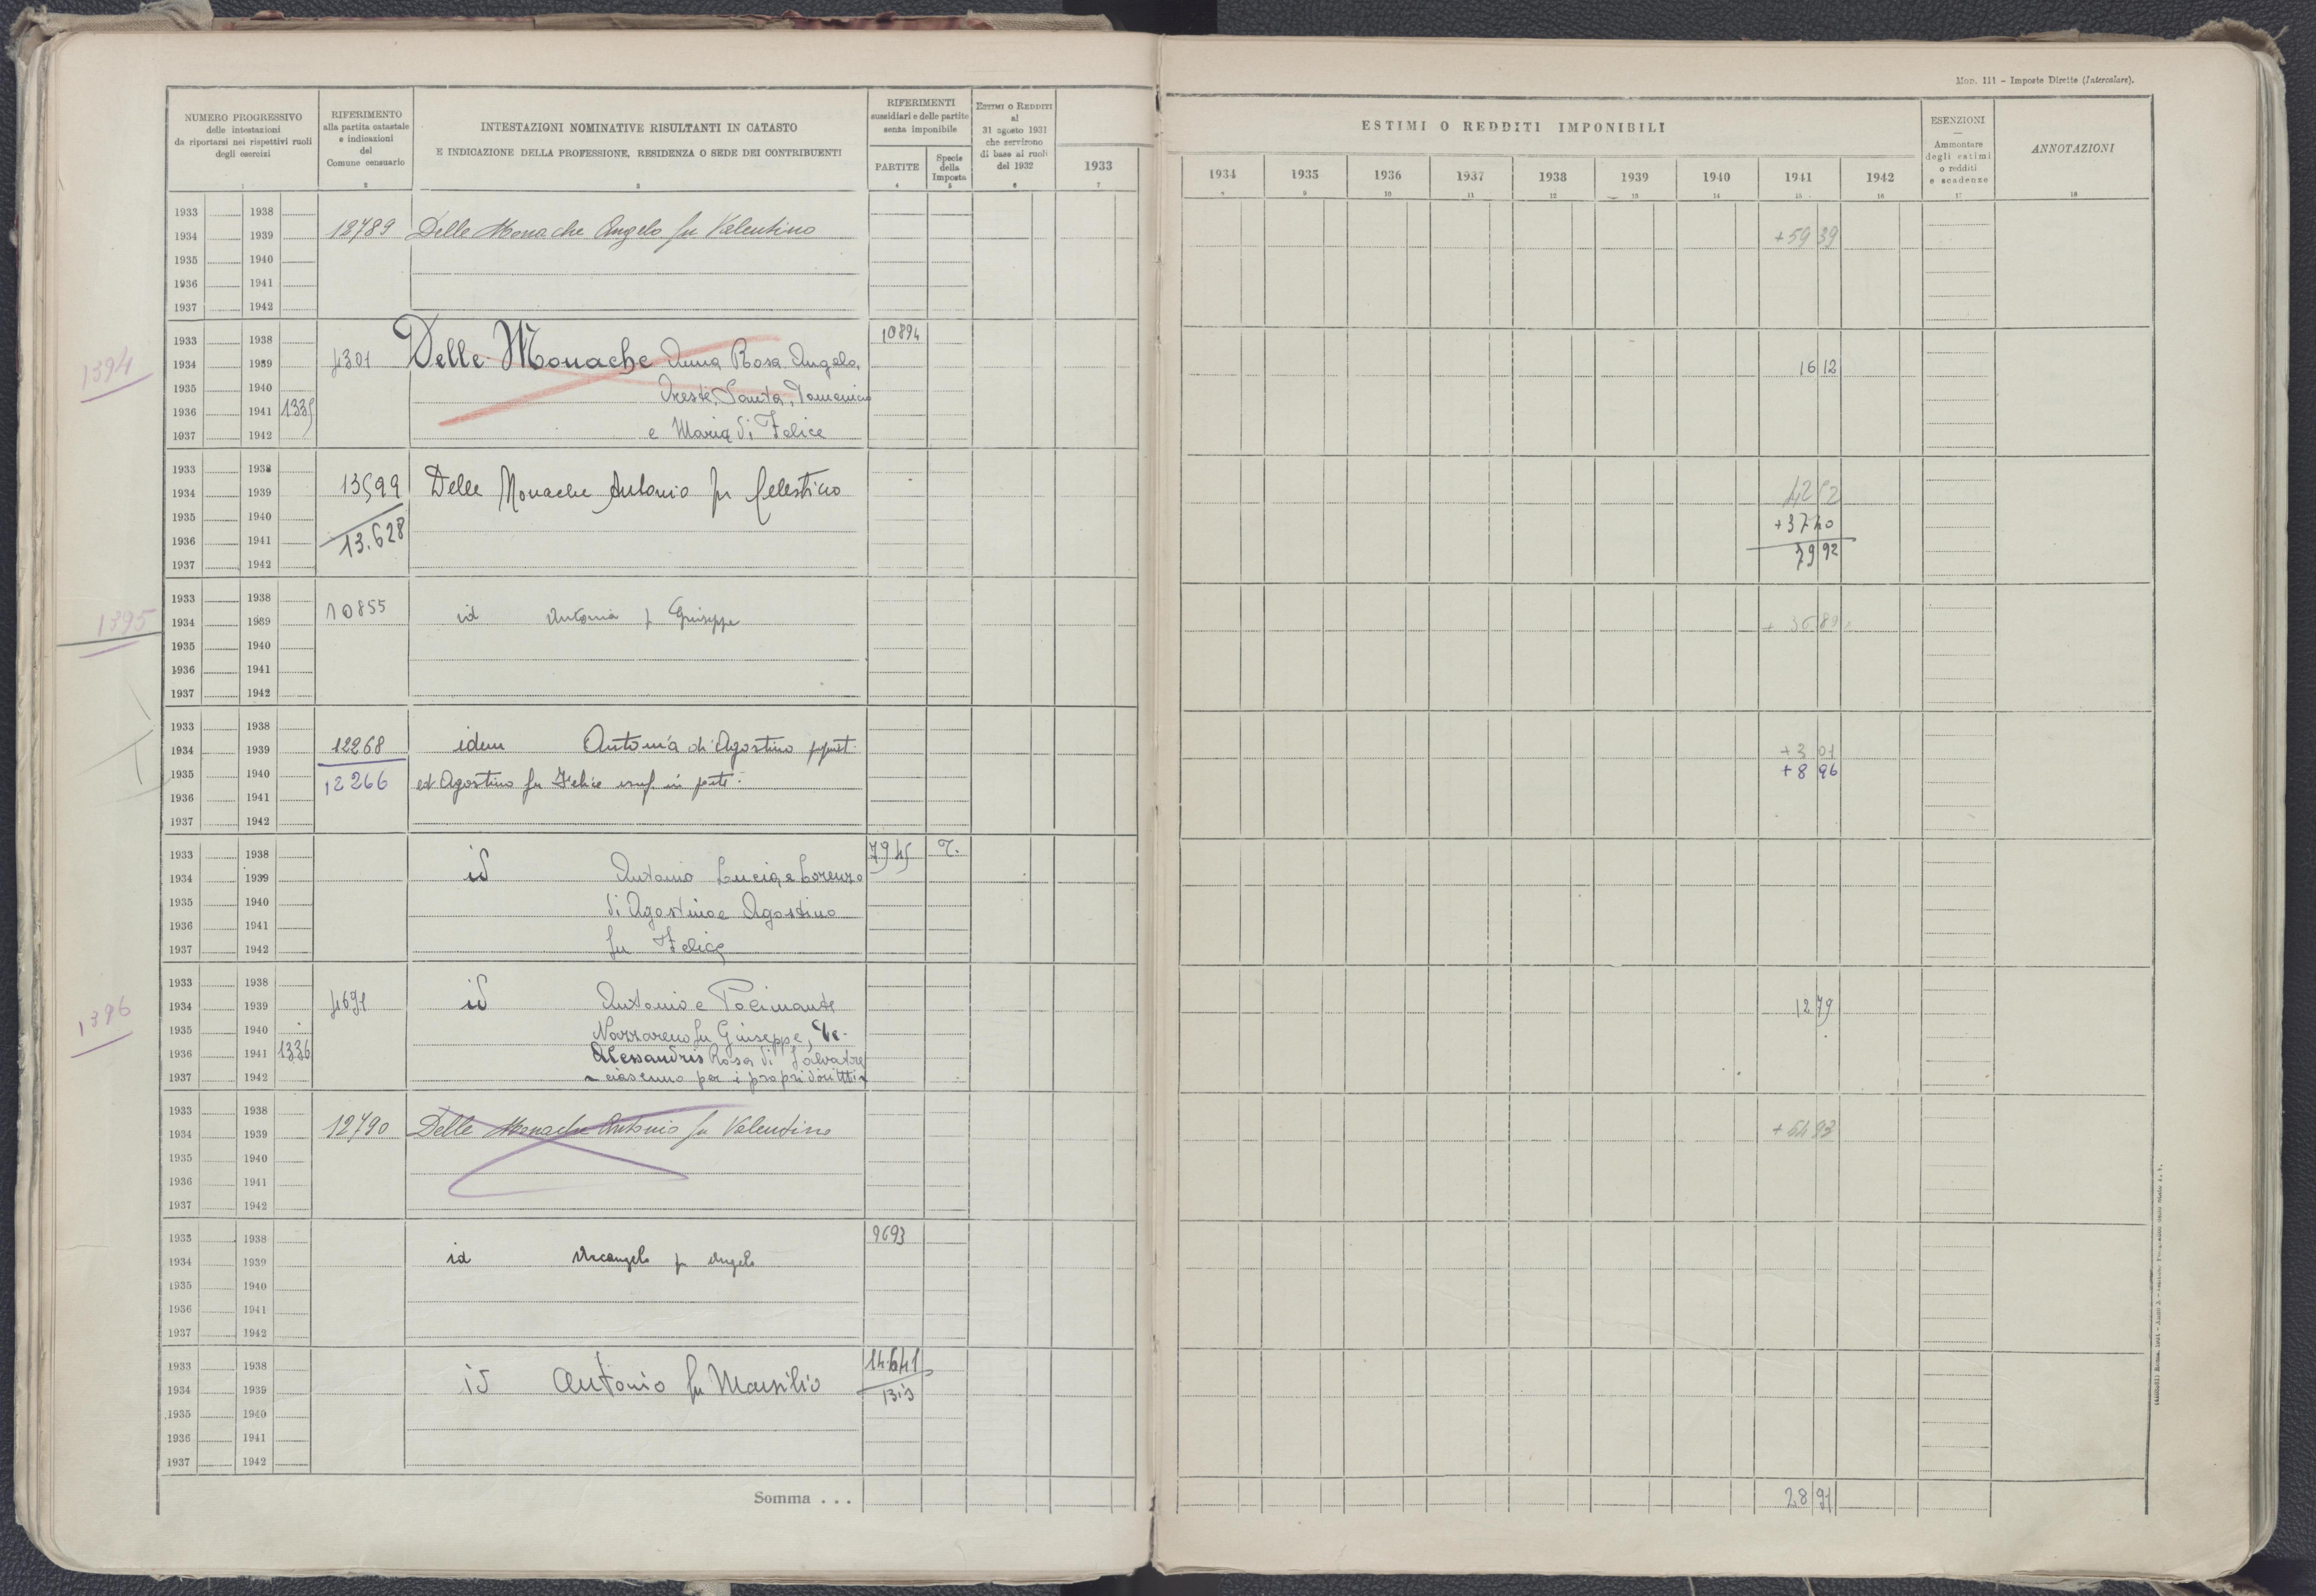 Mod. 111 - Imposte Dirette (Intercalare).
NUMERO PROGRESSIVO
delle intestazioni
da riportarsi nei rispettivi ruoli
degli esercizi
1
RIFERIMENTO
alla partita catastale
e indicazioni
del
Comune censuario
2
INTESTAZIONI NOMINATIVE RISULTANTI IN CATASTO
E INDICAZIONE DELLA PROFESSIONE, RESIDENZA O SEDE DEI CONTRIBUENTI
3
RIFERIMENTI
sussidiari e delle partite
senza imponibile
PARTITE
4
Specie
della
Imposta
5
ESTIMI O REDDITI
al
31 agosto 1931
che servirono
di base ai ruoli
del 1932
6
1933
7
ESTIMI O REDDITI IMPONIBILI
1934 1935 1936 1937 1938 1939 1940 1941 1942
8 9 10 11 12 13 14 15 16
ESENZIONI
Ammontare
degli estimi
o redditi
e scadenze
17
ANNOTAZIONI
18
1933 1938
1934 1939 12789 Delle Monache Angelo fu Valentino +59 39
1935 1940
1936 1941
1937 1942
1933 1938 10894
1394 1934 1939 4301 Delle Monache Anna Rosa Angelo, 16 12
1935 1940 Oreste, Santa, Domenico
1936 1941 1335
1937 1942 e Maria di Felice
1933 1938
1934 1939 13599 Delle Monache Antonio fu Celestino 42 52
1935 1940 +37 40
1936 1941 13.628 79 92
1937 1942
1933 1938
1395 1934 1939 10855 id Antonia fu Giuseppe
1935 1940
1936 1941
1937 1942
1933 1938
1934 1939 12268 idem Antonia di Agostino +3 01
1935 1940 12266 ed Agostino fu Felice usuf. in parte +8 96
1936 1941
1937 1942
1933 1938 7945 T.
1934 1939 id Antonio Lucia e Lorenzo
1935 1940 di Agostino e Agostino
1936 1941
1937 1942 fu Felice
1933 1938
1396 1934 1939 4691 id Antonio e Polimante 12 79
1935 1940 Nazzareno fu Giuseppe, De
1936 1941 1336 Alessandris Rosa di Salvatore
1937 1942 ciascuno per i propri diritti
1933 1938
1934 1939 12790 Delle Monache Antonio fu Valentino +54 93
1935 1940
1936 1941
1937 1942
1933 1938 9693
1934 1939 id Arcangelo fu Angelo
1935 1940
1936 1941
1937 1942
1933 1938 14641
1934 1939 id Antonio fu Marsilio bis
1935 1940
1936 1941
1937 1942
Somma . . . 28 91